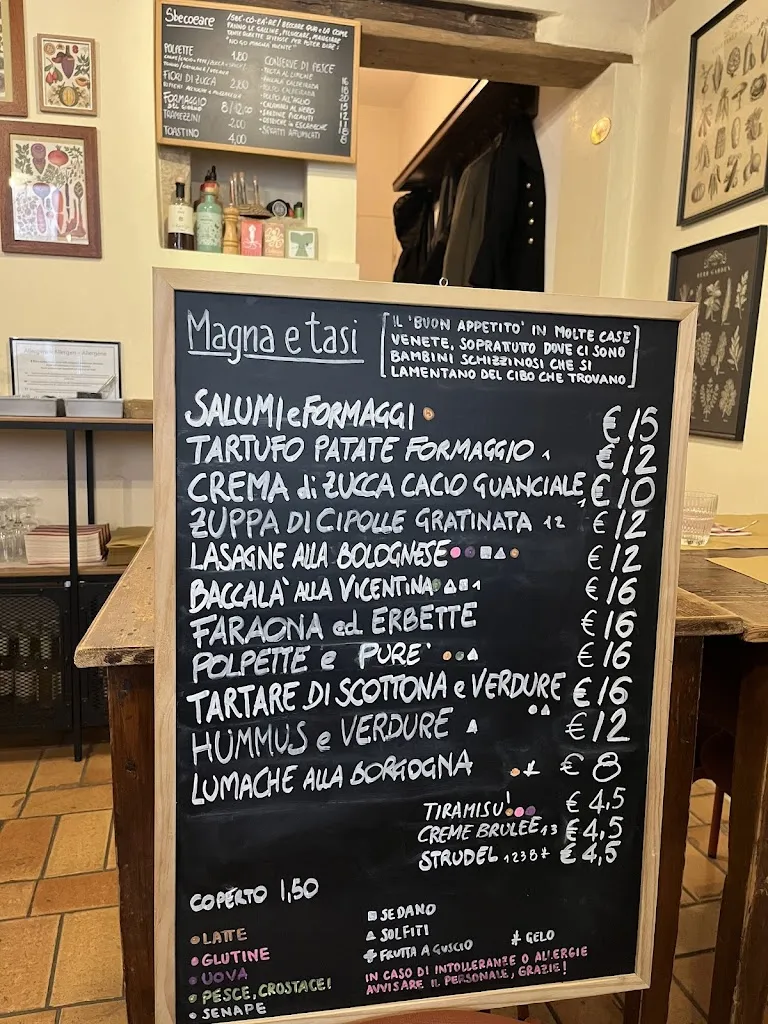 Sbecoeare
POLPETTE 1,80
FIORI DI ZUCCA 2,80
FORMAGGIO 8/12,00
TRAMEZZINI 2,00
TOASTINO 4,00
CONSERVE DI PESCE
Magna e tasi
[IL 'BUON APPETITO' IN MOLTE CASE
VENETE, SOPRATUTTO DOVE CI SONO
BAMBINI SCHIZZINOSI CHE SI
LAMENTANO DEL CIBO CHE TROVANO]
SALUMI e FORMAGGI €15
TARTUFO PATATE FORMAGGIO 1 €12
CREMA di ZUCCA CACIO GUANCIALE 1 €10
ZUPPA DI CIPOLLE GRATINATA 12 €12
LASAGNE ALLA BOLOGNESE €12
BACCALA' ALLA VICENTINA 1 €16
FARAONA ed ERBETTE €16
POLPETTE e PURE' €16
TARTARE DI SCOTTONA e VERDURE €16
HUMMUS e VERDURE €12
LUMACHE ALLA BORGOGNA € 8
TIRAMISU! € 4,5
CREME BRULEE 13 € 4,5
STRUDEL 1238* € 4,5
COPERTO 1,50
LATTE
GLUTINE
UOVA
PESCE, CROSTACEI
SENAPE
SEDANO
SOLFITI
FRUTTA A GUSCIO
* GELO
IN CASO DI INTOLLERANZE O ALLERGIE
AVVISARE IL PERSONALE, GRAZIE!
HERB GARDEN